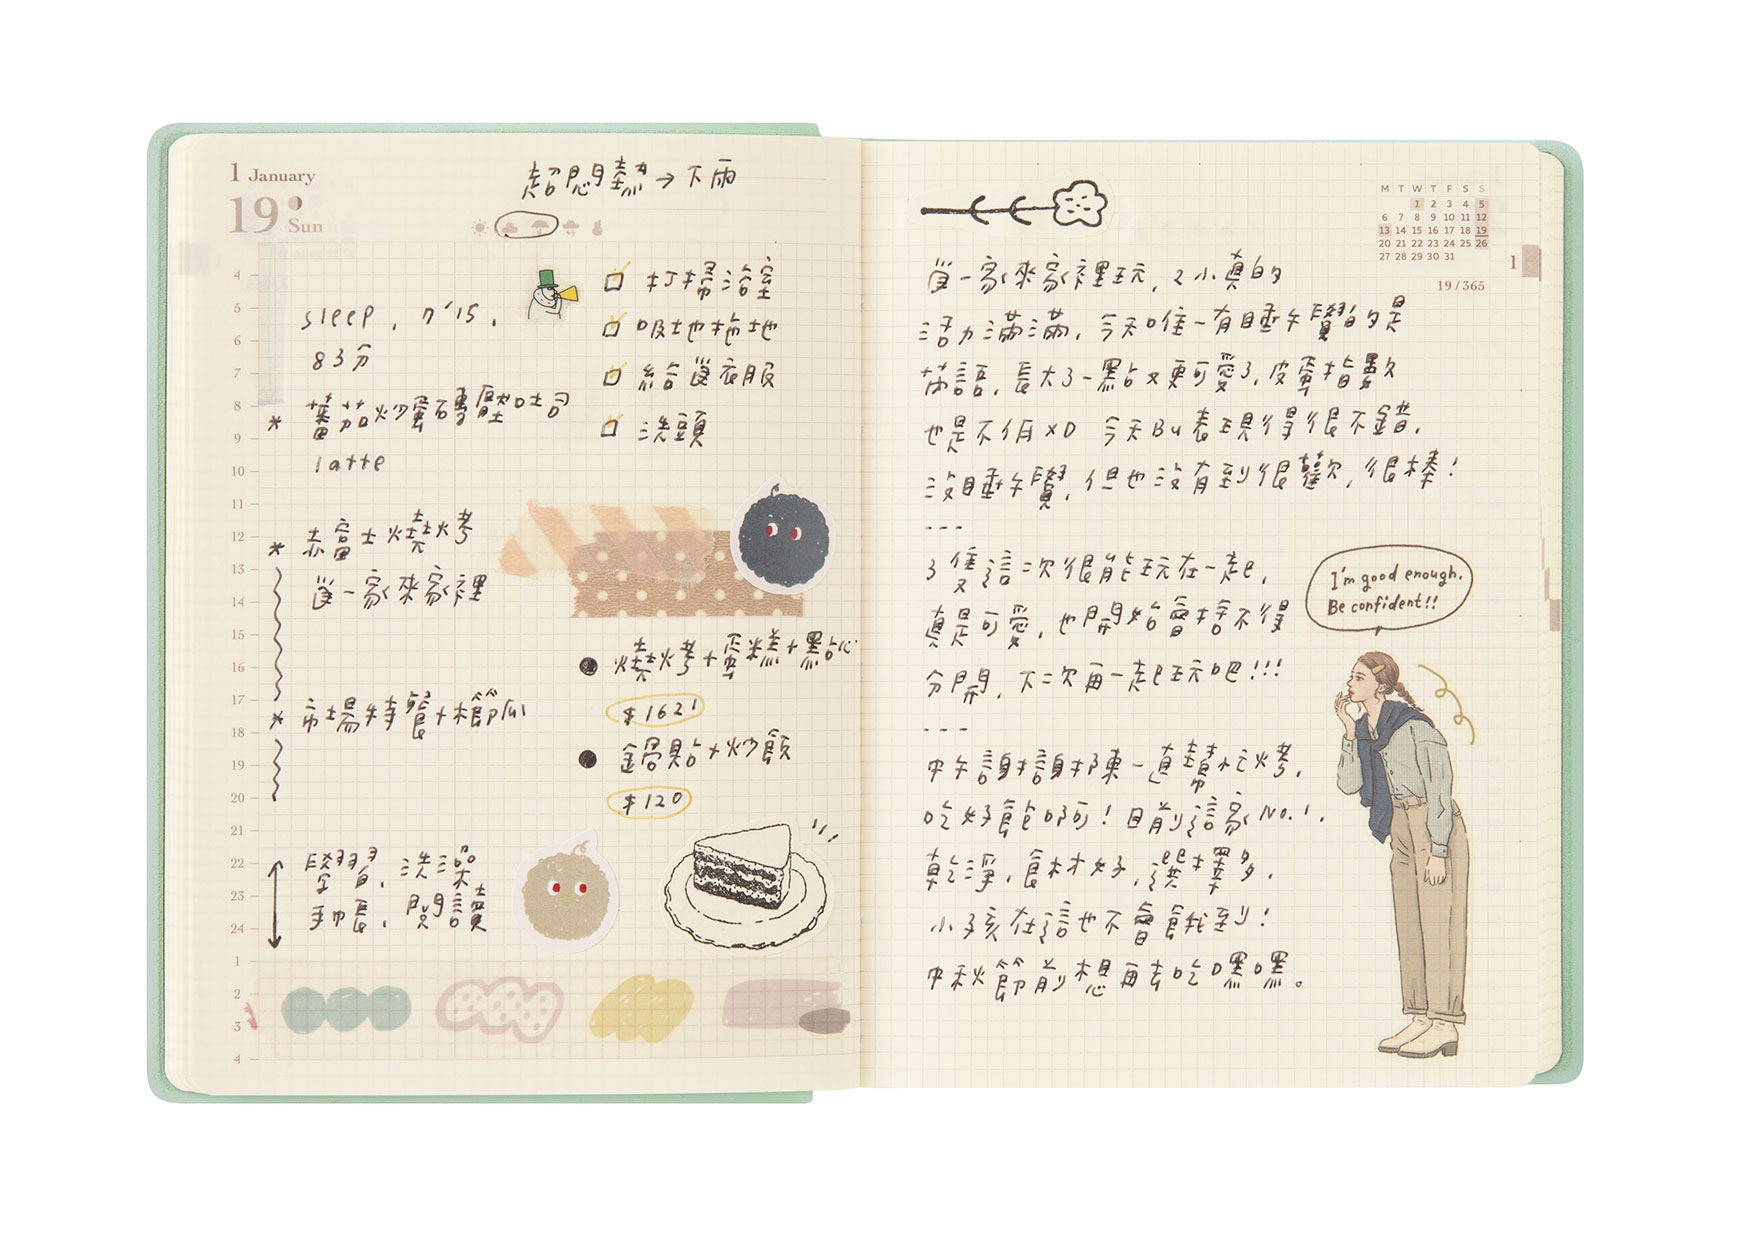 1 January
19 Sun
超悶熱→下雨
4
5
6
7
8
9
10
11
12
13
14
15
16
17
18
19
20
21
22
23
24
1
2
3
4
sleep, 7'15,
83分
* 蕃茄炒蛋磚壓吐司
latte
* 赤富士燒烤
萤一家來家裡
* 市場特餐+櫛瓜
學習, 洗澡
手帳, 閱讀
打掃浴室
吸地拖地
給萤衣服
洗頭
燒烤+蛋糕+點心
$1621
鍋貼+炒飯
$120
M T W T F S S
1 2 3 4 5
6 7 8 9 10 11 12
13 14 15 16 17 18 19
20 21 22 23 24 25 26
27 28 29 30 31
1
19/365
萤一家來家裡玩, 2小真的
活力滿滿, 今天唯一有睡午覺的是
苗語, 長大了一點又更可愛了, 皮蛋指數
也是不低XD 今天Bu表現得很不錯,
沒睡午覺, 但也沒有到很難歡, 很棒!
---
3隻這次很能玩在一起,
真是可愛, 也開始會捨不得
分開, 下次再一起玩吧!!!
---
中午謝謝陳一直幫忙烤,
吃好飽啊! 目前這家No.1,
乾淨, 食材好, 選擇多,
小孩在這也不會餓到!
中秋節前想再去吃嘿嘿。
I'm good enough.
Be confident!!